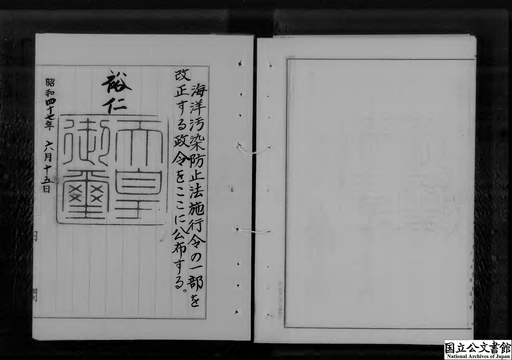 海洋汚染防止法施行令の一部を
改正する政令をここに公布する。
裕仁
天皇
御璽
昭和四十七年 六月十五日
内閣
国立公文書館
National Archives of Japan